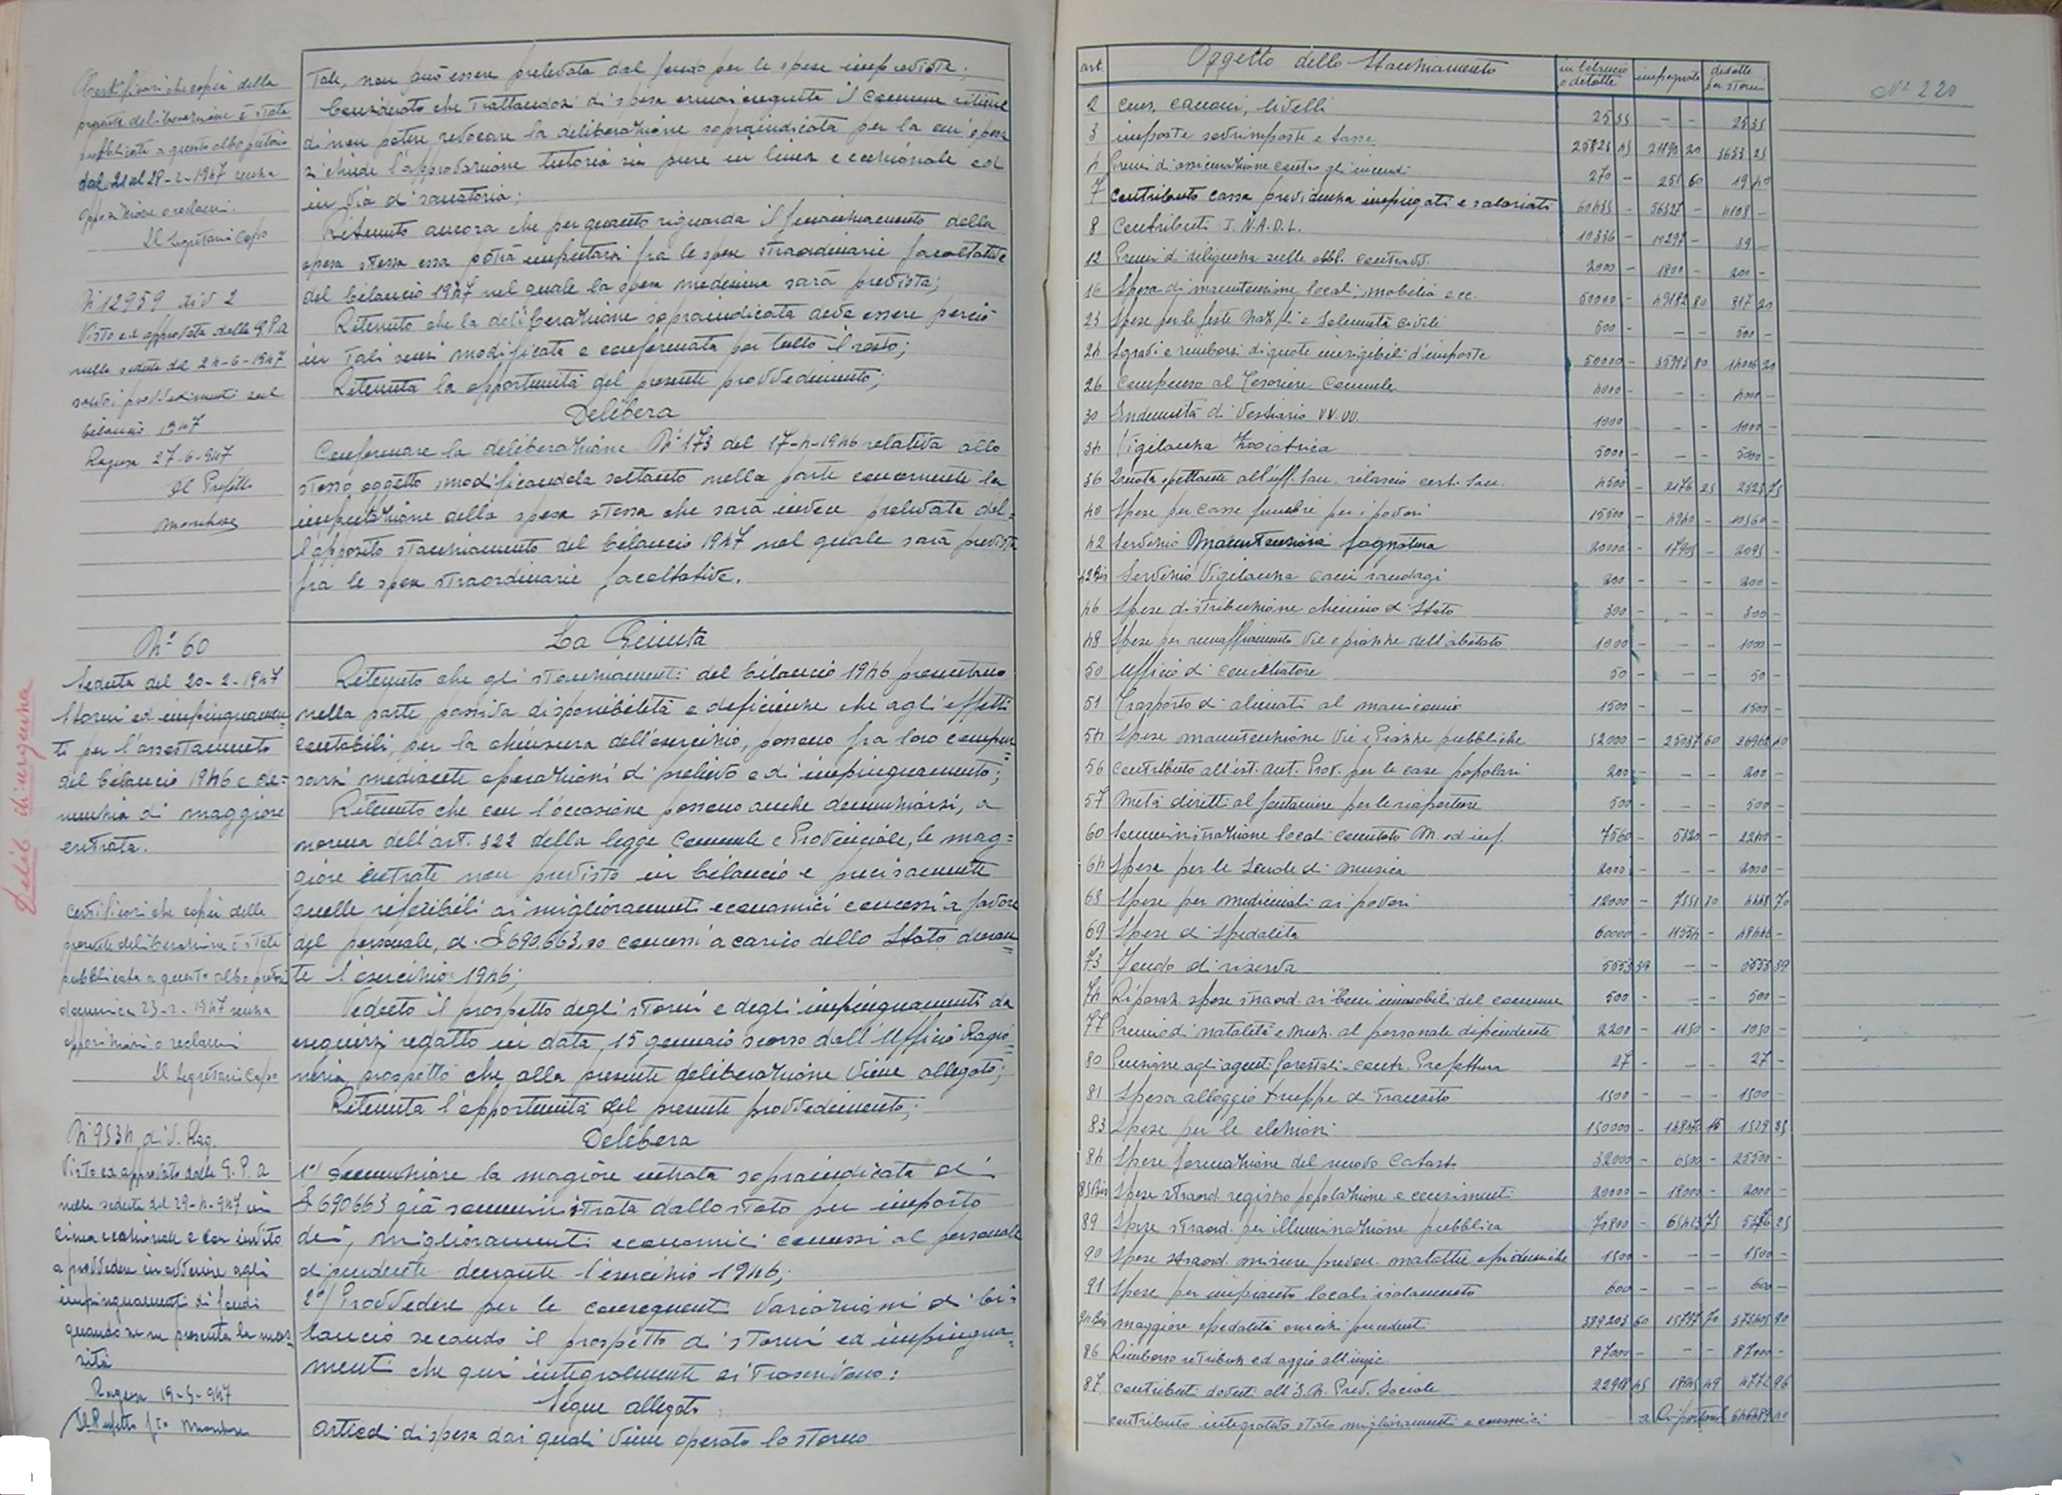 Certificasi che copia della
presente deliberazione è stata
pubblicata a questo albo pretorio
dal 21 al 28-2-1947 senza
opposizioni o reclami.
Il Segretario Capo
N° 12959 div 2
Visto ed approvata dalla G.P.A
nella seduta del 24-6-1947
bilancio 1947
Ragusa 27-6-947
Il Prefetto
Tale, non può essere prelevata dal fondo per le spese impreviste;
Considerato che trattandosi di spesa ormai eseguita il Comune ritiene
di non potere revocare la deliberazione sopraindicata per la cui spesa
richiede l'approvazione tutoria sia pure in linea eccezionale ed
in via di sanatoria;
Ritenuto ancora che per quanto riguarda il finanziamento della
spesa stessa essa potrà imputarsi fra le spese straordinarie facoltative
del bilancio 1947 nel quale la spesa medesima sarà prevista;
Ritenuto che la deliberazione sopraindicata deve essere perciò
in tali sensi modificata e confermata per tutto il resto;
Ritenuta la opportunità del presente provvedimento;
Delibera
Confermare la deliberazione N° 173 del 17-4-1946 relativa allo
stesso oggetto, modificandola soltanto nella parte concernente la
imputazione della spesa stessa che sarà invece prelevata del=
l'apposito stanziamento del bilancio 1947 nel quale sarà prevista
fra le spese straordinarie facoltative.
Delib. d'urgenza
N° 60
Seduta del 20-2-1947
Storni ed impinguamen-
ti per l'assestamento
del bilancio 1946 e de=
nunzia di maggiore
entrata.
Certificasi che copia della
presente deliberazione è stata
pubblicata a questo albo pretorio
domenica 23-2-1947 senza
opposizioni o reclami
Il Segretario Capo
N° 9534 div. Rag.
Visto ed approvato dalla G.P.A
nella seduta del 29-4-947 in
linea eccezionale e con invito
a provvedere in avvenire agli
impinguamenti di fondi
quando se ne presenta la neces
sità
Ragusa 19-5-947
Il Prefetto f.to
La Giunta
Ritenuto che gli stanziamenti del bilancio 1946 presentano
nella parte passiva disponibilità e deficienze che agli effetti
contabili, per la chiusura dell'esercizio, possono fra loro compen=
sarsi mediante operazioni di prelievo e di impinguamento;
Ritenuto che con l'occasione possono anche denunziarsi, a
norma dell'art. 322 della legge Comunale e Provinciale, le mag=
giore entrate non previsto in bilancio e precisamente
quelle riferibili ai miglioramenti economici concessi a favore
del personale, di £ 690.663,00 concessi a carico dello Stato duran=
te l'esercizio 1946;
Veduto il prospetto degli storni e degli impinguamenti da
eseguirsi redatto in data 15 gennaio scorso dall'Ufficio Ragio=
neria, prospetto che alla presente deliberazione viene allegato;
Ritenuta l'opportunità del presente provvedimento;
Delibera
1°/ Denunziare la magiore entrata sopraindicata di
£ 690663 già somministrata dallo stato per importo
dei, miglioramenti economici concessi al personale
dipendente durante l'esercizio 1946;
2°/ Provvedere per le conseguenti variazioni di bi=
lancio secondo il prospetto di storni ed impingua=
menti che qui integralmente si trascrivono:
Segue allegato
Articoli di spesa dai quali viene operato lo storno
N° 220
art. Oggetto dello Stanziamento in bilancio o detratte impegnate dedotte per storni
2 Cens. canoni, livelli 25 35 - - 25 35
3 imposte sovrimposte e tasse 25823 45 21190 20 4633 25
4 Premi di assicurazione contro gli incendi 270 - 251 60 19 40
7 Contributo cassa previdenza impiegati e salariati 60435 - 56327 - 4108 -
8 Contributi I.N.A.D.L. 10336 - 10297 - 39 -
12 Premi di diligenza sulle obbl. contravv. 2000 - 1800 - 200 -
16 Spesa di manutenzione locali, mobilia ecc. 50000 - 49182 80 817 20
23 Spese per le feste Naz.li e solennità civili 500 - - 500 -
24 Sgravi e rimborsi di quote inesigibili d'imposte 50000 - 35993 80 14006 20
26 Compenso al Tesoriere Comunale 4000 - - - 4000 -
30 Indennità di vestiario VV.UU. 1000 - - - 1000 -
34 Vigilanza Zooiatrica 5000 - - - 5000 -
36 Quota spettante all'uff. San. rilascio cert. San. 4500 - 2176 25 2323 75
40 Spese per casse funebri per i poveri 15500 - 4940 - 10560 -
42 Servizio Manutenzione fognatura 20000 - 17905 - 2095 -
42 Bis Servizio Vigilanza cani randagi 200 - - - 200 -
46 Spese distribuzione chinino di Stato 300 - - - 300 -
48 Spese per annaffiamento vie e piazze dell'abitato 1000 - - - 1000 -
50 Ufficio di conciliatore 50 - - - 50 -
51 Trasporto di alienati al manicomio 1500 - - - 1500 -
54 Spese manutenzione Vie e Piazze pubbliche 52000 - 25037 60 26962 40
56 Contributo all'ist. aut. Prov. per le case popolari 200 - - - 200 -
57 Metà diritti al fontaniere per le riaperture 500 - - - 500 -
60 Somministrazione locali comitato M. ed inf. 7560 - 5320 - 2240 -
64 Spesa per le Scuole di musica 2000 - - - 2000 -
68 Spese per medicinali ai poveri 12000 - 7551 30 4448 70
69 Spese di Spedalità 60000 - 11554 - 48446 -
73 Fondo di riserva 5553 39 - - 5553 39
74 Riparaz. spese straord. ai beni immobili del comune 500 - - - 500 -
77 Premio di natalità e nuz. al personale dipendente 2200 - 1150 - 1050 -
80 Pensione agli agenti forestali - contr. Prefettura 27 - - - 27 -
81 Spesa alloggio truppe di transito 1500 - - - 1500 -
83 Spese per le elezioni 150000 - 148470 15 1529 85
84 Spese formazione del nuovo Catasto 32000 - 6500 - 25500 -
85 Bis Spese straord. registro popolazione e censimenti 20000 - 18000 - 2000 -
89 Spese straord. per illuminazione pubblica 70800 - 65413 75 5386 25
90 Spese straord. misure preven. malattie epidemiche 1500 - - - 1500 -
91 Spese per impianto locali isolamento 600 - - - 600 -
maggiore spedalità eserciz. precedenti 389203 60 15797 70 373405 90
86 Rimborso retribuz. ed aggio all'impic. 87000 - - - 87000 -
87 Contributi dovuti all'I.N. Prev. Sociale 22918 45 18145 49 4772 96
contributo integrativo stato miglioramenti economici a Riportarsi